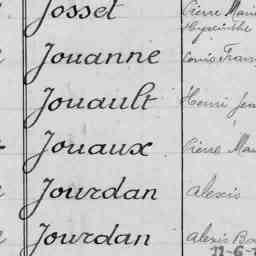 Josset Pierre Marie
Hyacinthe
Jouanne Louis Fran
Jouault Henri Jean
Jouaux Pierre Mar
Jourdan alexis
Jourdan alexis